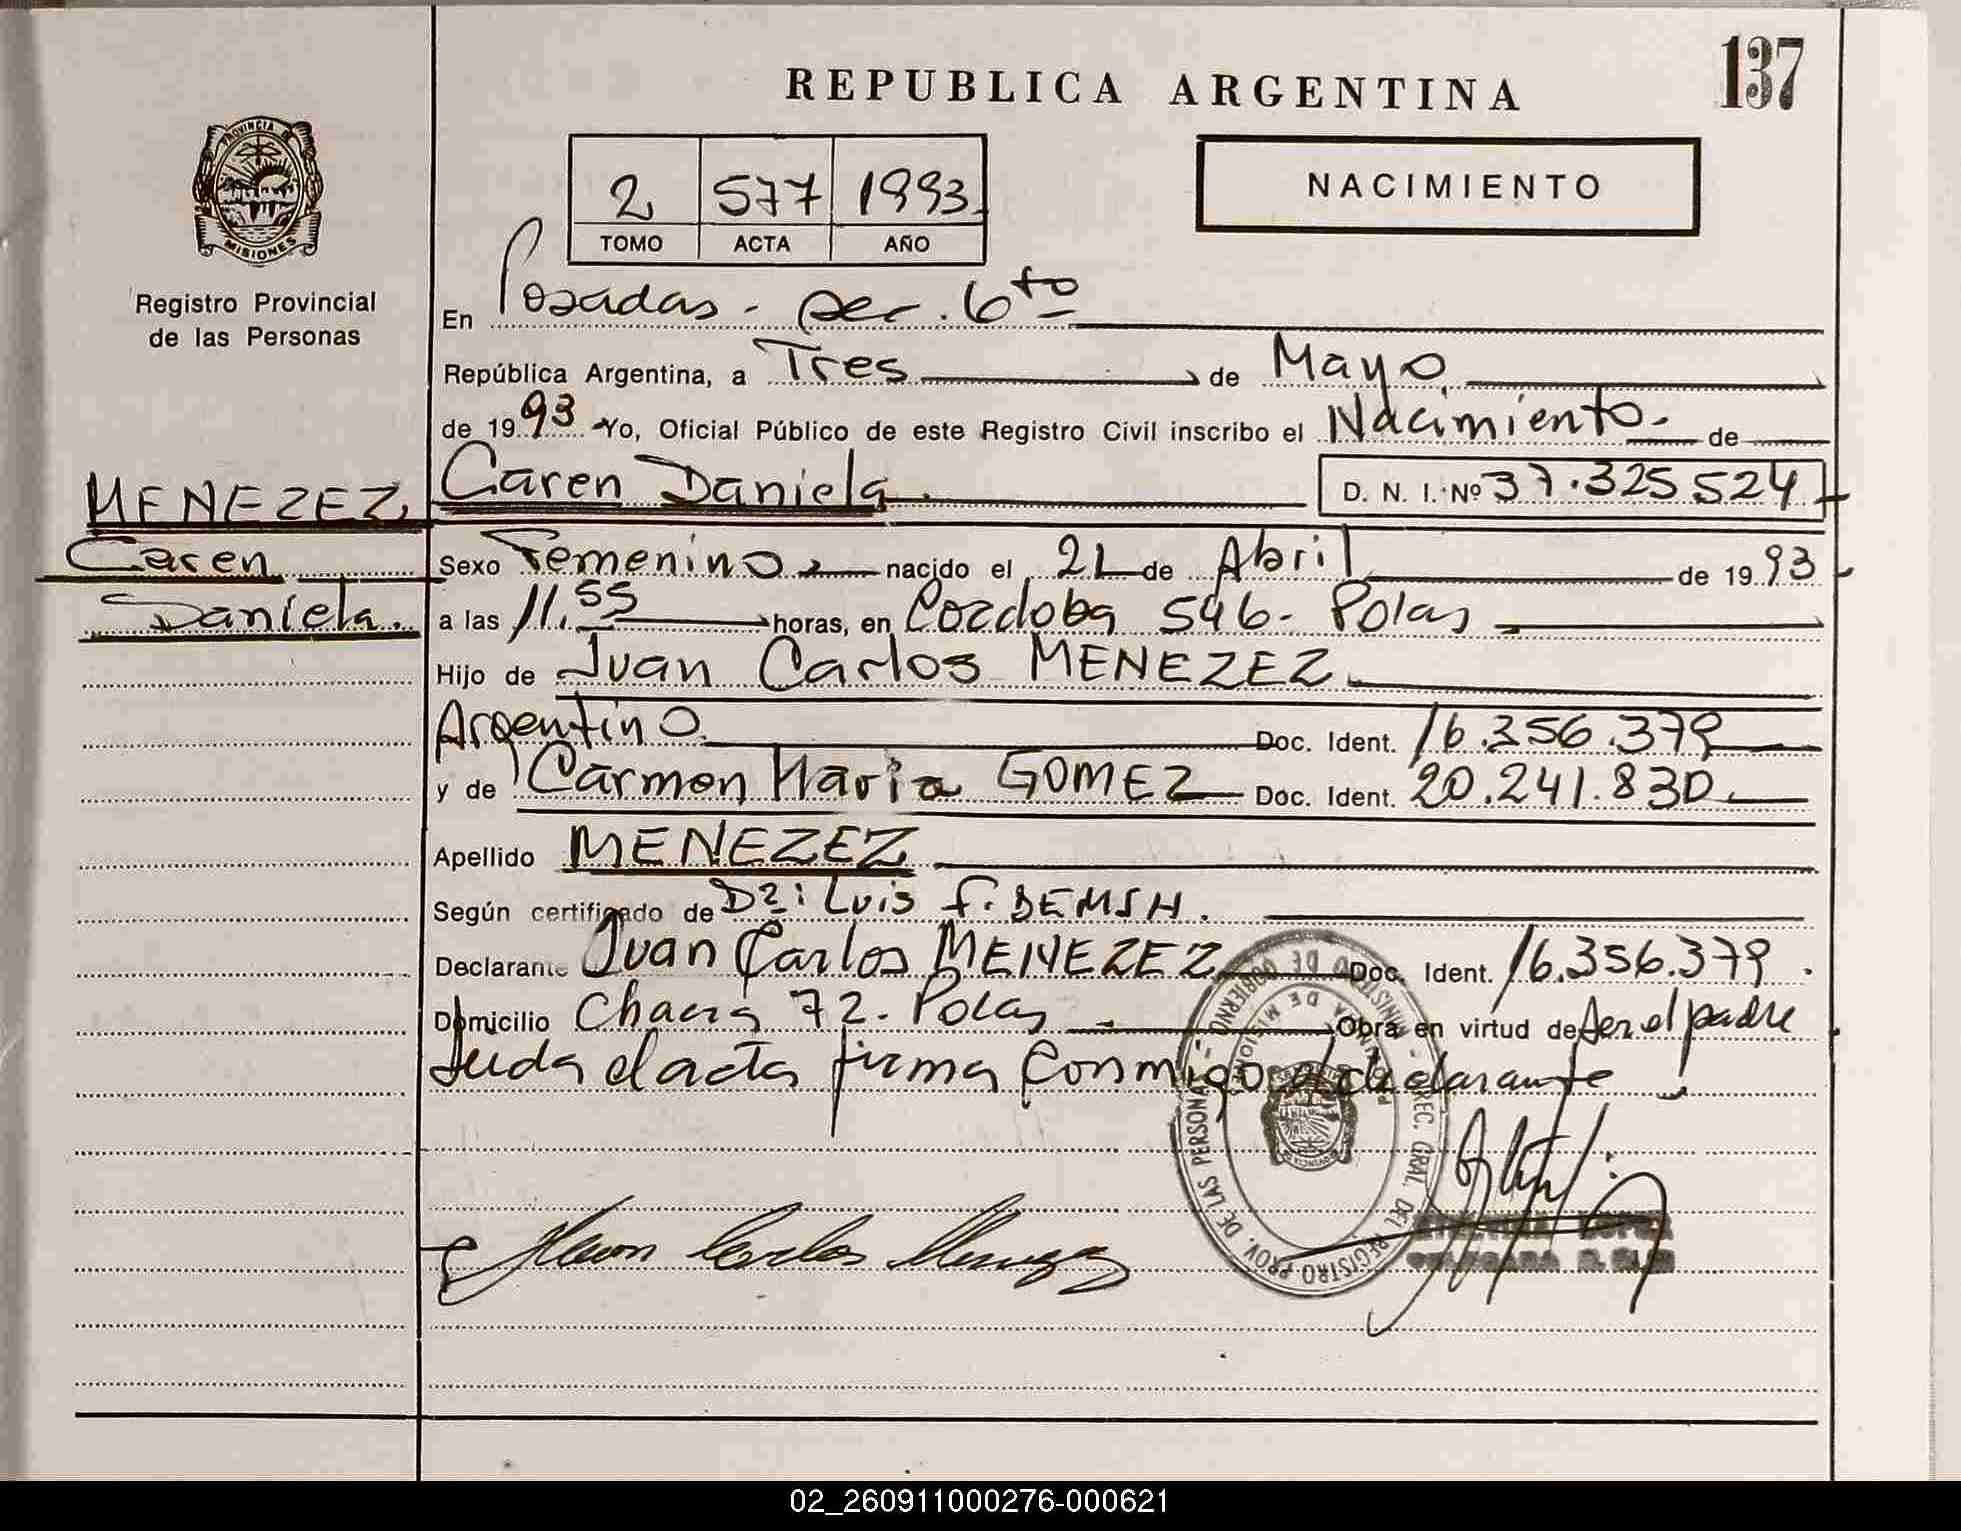 137
REPUBLICA ARGENTINA
2 577 1993
TOMO ACTA AÑO
NACIMIENTO
PROVINCIA DE MISIONES
Registro Provincial
de las Personas
En Posadas - sec. 6to
República Argentina, a Tres de Mayo
de 1993 Yo, Oficial Público de este Registro Civil inscribo el Nacimiento de
MENEZEZ Caren Daniela D. N. I. Nº 37.325.524
Caren Sexo Femenino nacido el 21 de Abril de 1993
Daniela a las 11.55 horas, en Cordoba 546 - Pdas
Hijo de Juan Carlos MENEZEZ
Argentino Doc. Ident. 16.356.379
y de Carmen Maria GOMEZ Doc. Ident. 20.241.830
Apellido MENEZEZ
Según certificado de Dr: Luis F.
Declarante Juan Carlos MENEZEZ Doc. Ident. 16.356.379.
Domicilio Chacra 72 - Pdas Obra en virtud de ser el padre
Leida el acta firma conmigo el declarante
Juan Carlos Menezez
MINISTERIO DE GOBIERNO - DIREC. GRAL. DEL REGISTRO PROV. DE LAS PERSONAS
PROVINCIA DE MISIONES
02_260911000276-000621